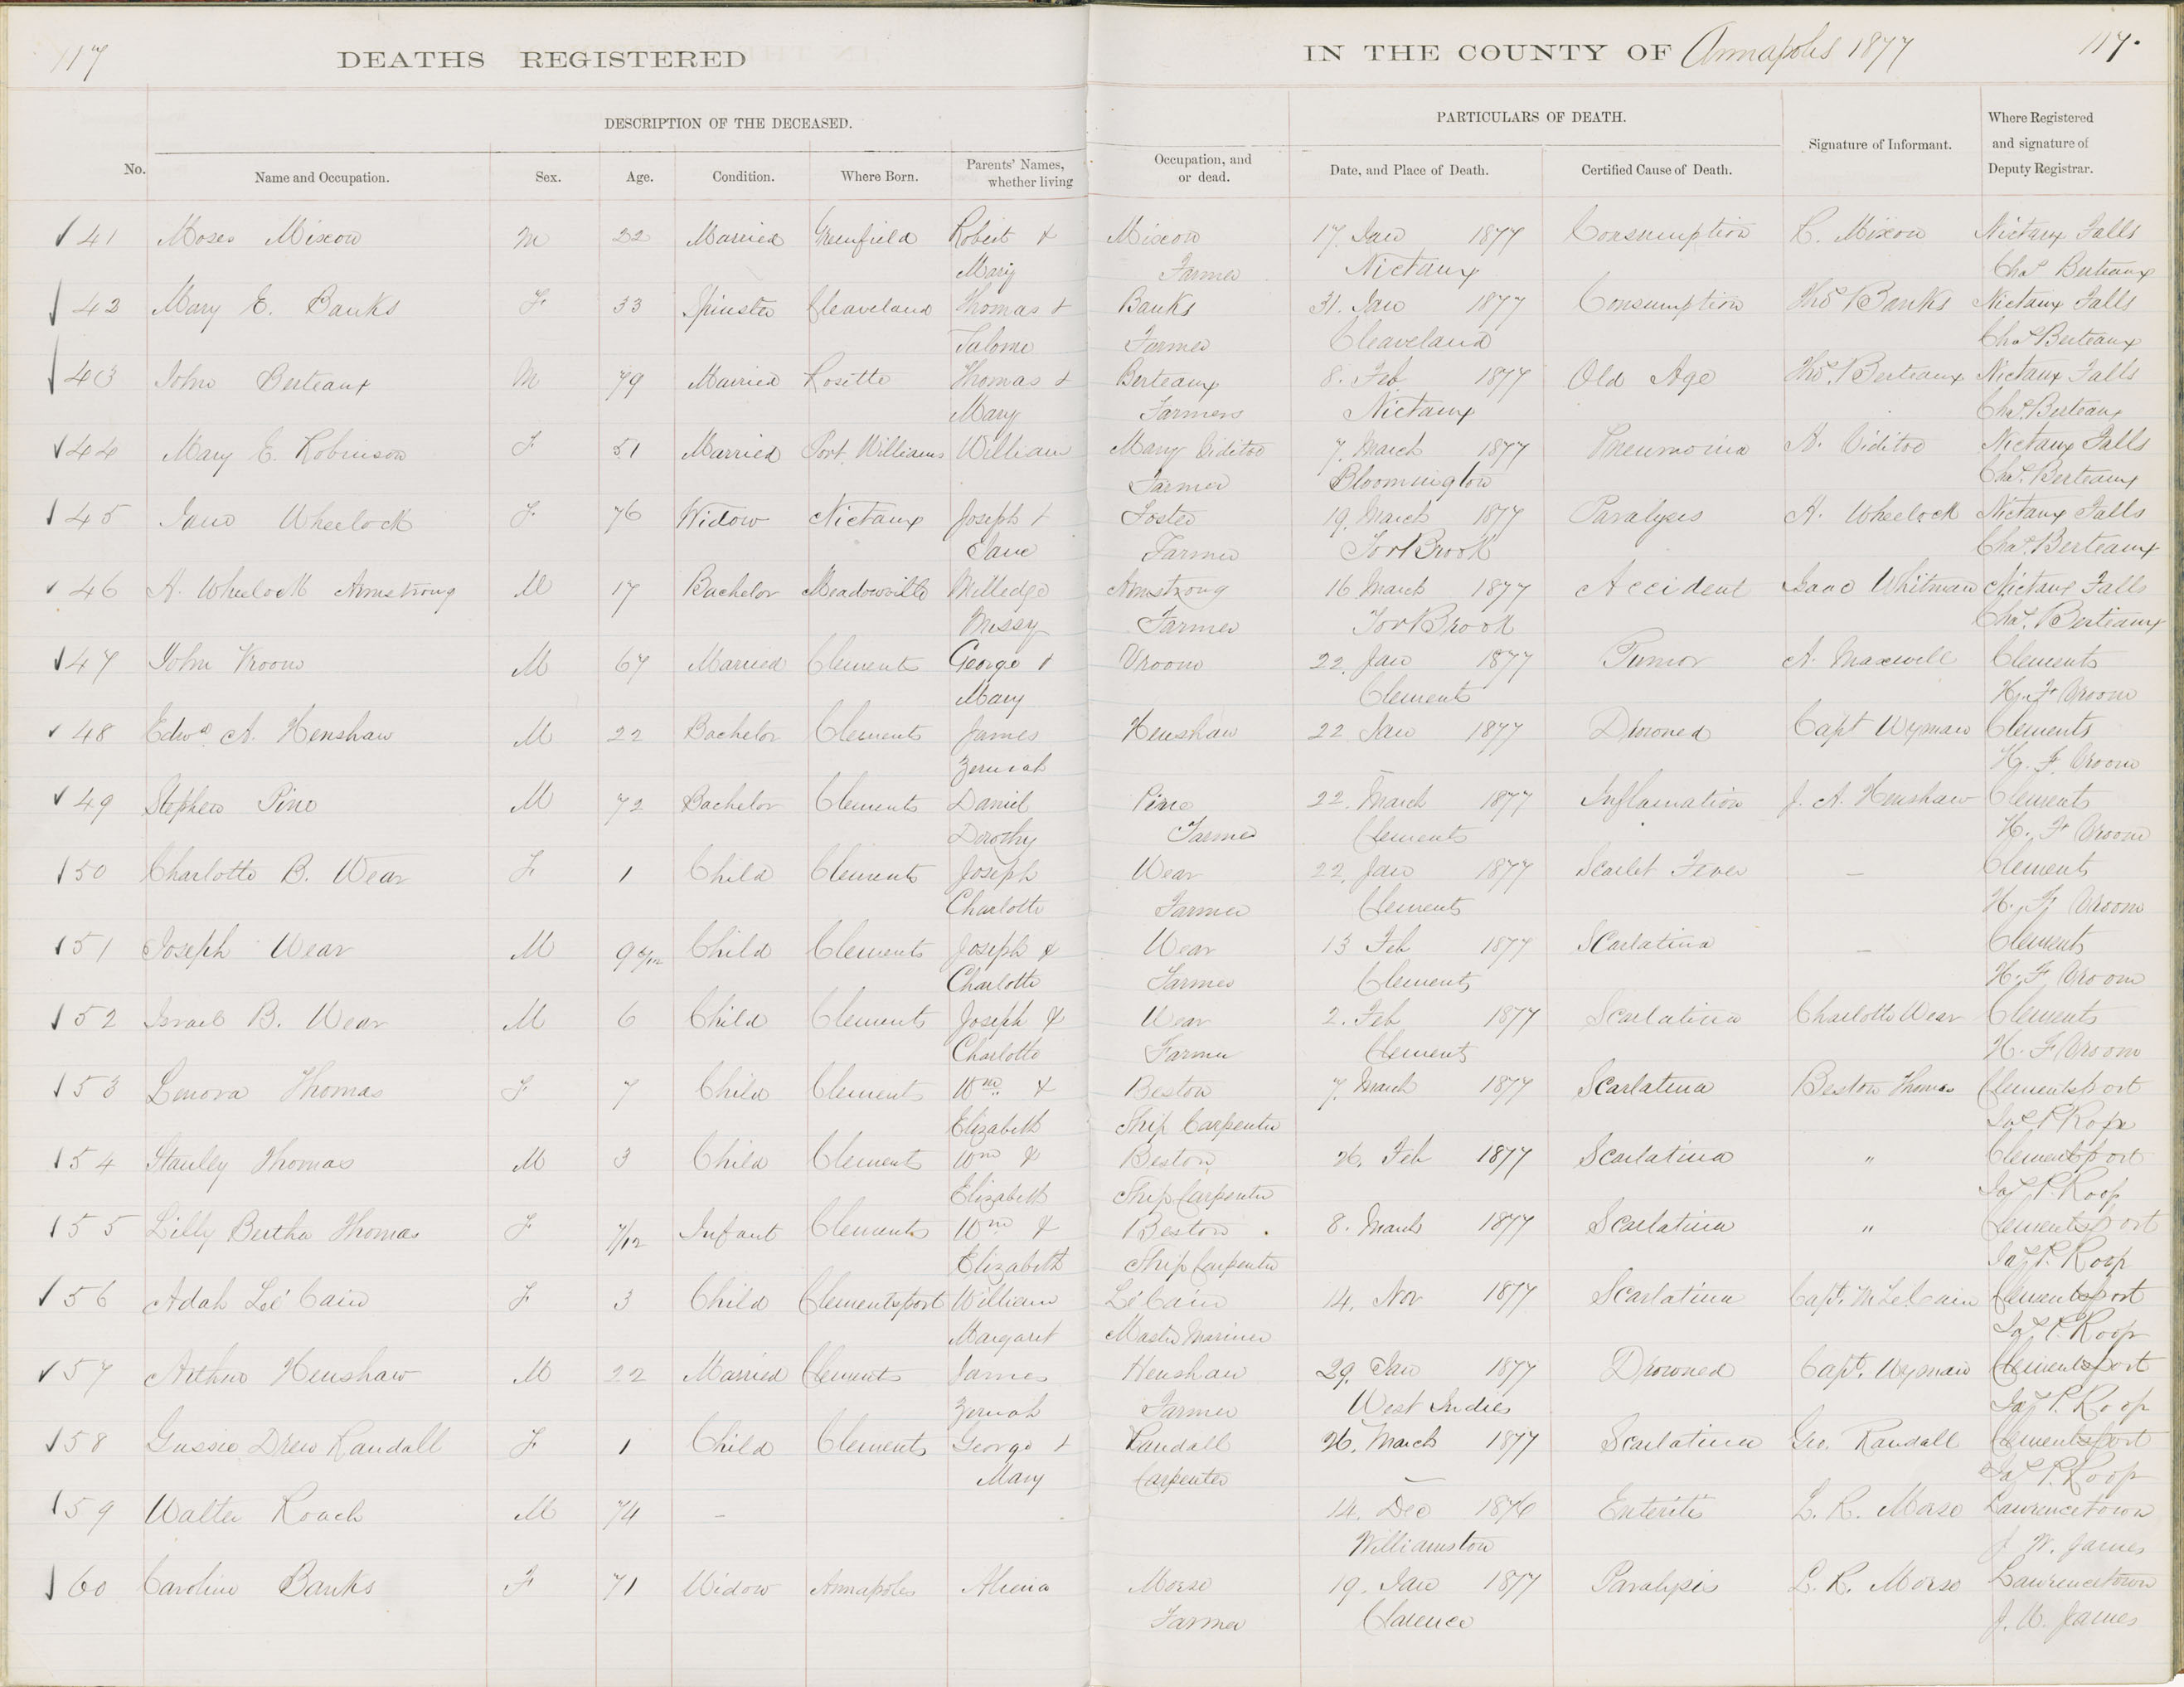 117 DEATHS REGISTERED IN THE COUNTY OF Annapolis 1877 117.
DESCRIPTION OF THE DECEASED. PARTICULARS OF DEATH.
No. Name and Occupation. Sex. Age. Condition. Where Born. Parents' Names, whether living Occupation, and or dead. Date, and Place of Death. Certified Cause of Death. Signature of Informant. Where Registered and signature of Deputy Registrar.
41 Moses Mixcow M 22 Married Greenfield Robert & Mixcow 17. Jan 1877 Consumption R. Mixcow Nictaux Falls
Mary Farmer Nictaux Chas Berteaux
42 Mary E. Banks F 33 Spinster Cleaveland Thomas & Banks 31. Jan 1877 Consumption Thos Banks Nictaux Falls
Salome Farmer Cleaveland Chas Berteaux
43 John Berteaux M 79 Married Rosette Thomas & Berteaux 8. Feb 1877 Old Age Thos. Berteaux Nictaux Falls
Mary Farmers Nictaux Chas. Berteaux
44 Mary E. Robinson F 51 Married Port Williams William Mary Viditoo 7. March 1877 Pneumonia A. Viditoo Nictaux Falls
Farmer Bloomington Chas. Berteaux
45 Jane Wheelock F 76 Widow Nictaux Joseph & Foster 19. March 1877 Paralysis A. Wheelock Nictaux Falls
Jane Farmer TorBrook Chas. Berteaux
46 A. Wheelock Armstrong M 17 Bachelor Meadowville Milledge Armstrong 16 March 1877 Accident Isaac Whitman Nictaux Falls
Messy Farmer TorBrook Chas. Berteaux
47 John Vroom M 67 Married Clements George & Vroom 22. Jan 1877 Tumor A. Maxwell Clements
Mary Clements H. F. Vroom
48 Edwd. A. Henshaw M 22 Bachelor Clements James Henshaw 22 Jan 1877 Drowned Capt Wyman Clements
Zeruiah — H. F. Vroom
49 Stephen Pine M 72 Bachelor Clements Daniel Pine 22. March 1877 Inflamation J. A. Henshaw Clements
Dorothy Farmer Clements H. F. Vroom
50 Charlotte B. Wear F 1 Child Clements Joseph Wear 22. Jan 1877 Scarlet Fever — Clements
Charlotte Farmer Clements H. F. Vroom
51 Joseph Wear M 9 6/12 Child Clements Joseph & Wear 13 Feb 1877 Scarlatina — Clements
Charlotte Farmer Clements H. F. Vroom
52 Israel B. Wear M 6 Child Clements Joseph & Wear 2. Feb 1877 Scarlatina Charlotte Wear Clements
Charlotte Farmer Clements H. F. Vroom
53 Lenora Thomas F 7 Child Clements Wm & Beston 7. March 1877 Scarlatina Beston Thomas Clementsport
Elizabeth Ship Carpenter Jas P. Roop
54 Stanley Thomas M 3 Child Clements Wm & Beston 26. Feb 1877 Scarlatina " Clementsport
Elizabeth Ship Carpenter Jas P. Roop
55 Lilly Bertha Thomas F 7/12 Infant Clements Wm & Beston 8. March 1877 Scarlatina " Clementsport
Elizabeth Ship Carpenter Jas P. Roop
56 Adah Le Cain F 3 Child Clementsport William Le Cain 14. Nov 1877 Scarlatina Capt. W LeCain Clementsport
Margaret Master Mariner Jas P. Roop
57 Arthur Henshaw M 22 Married Clements James Henshaw 29. Jan 1877 Drowned Capt. Wyman Clementsport
Zeruiah Farmer West Indies Jas P. Roop
58 Gussie Drew Randall F 1 Child Clements George & Randall 26. March 1877 Scarlatina Geo. Randall Clementsport
Mary Carpenter — Jas P. Roop
59 Walter Roach M 74 — 14. Dec 1876 Enteritis L. R. Morse Lawrencetown
Williamston J. W. James
60 Caroline Banks F 71 Widow Annapolis Morse 19. Jan 1877 Paralysis L. R. Morse Lawrencetown
Farmer Clarence J. W. James